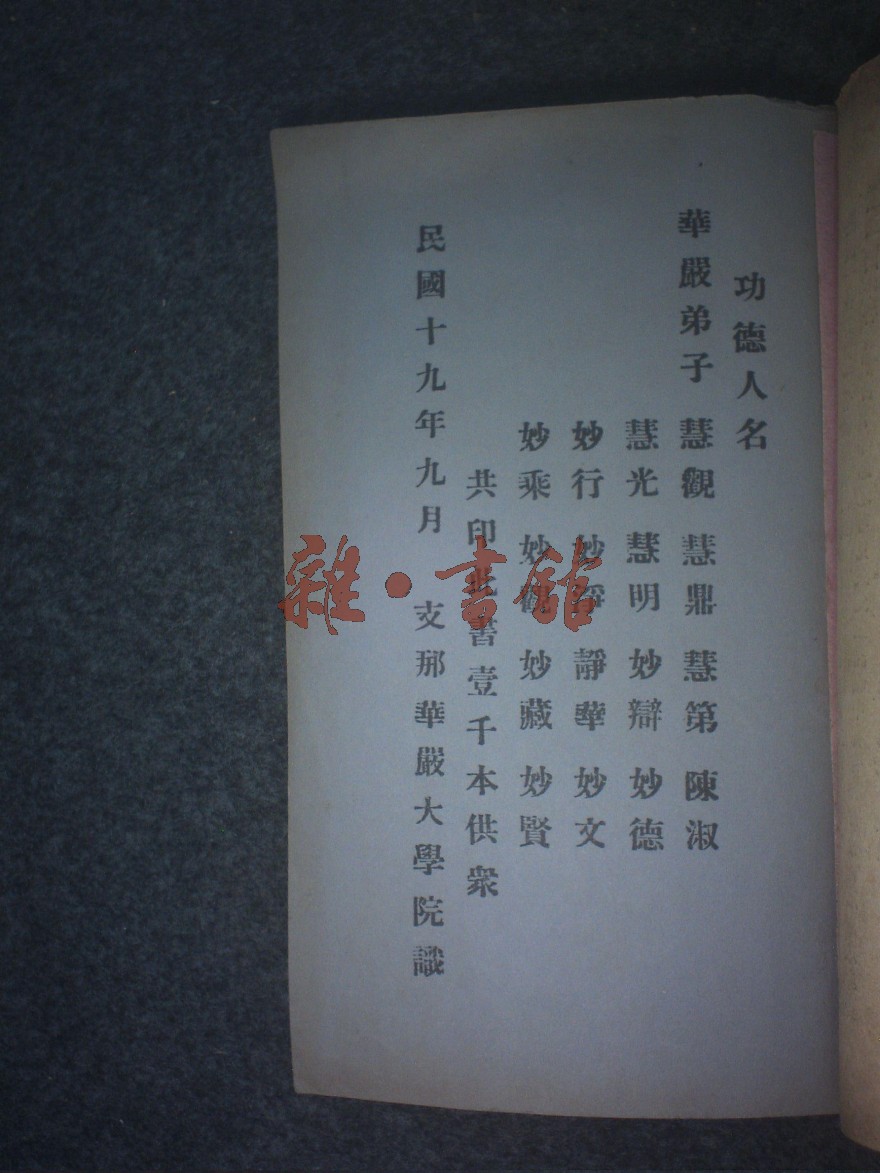 功德人名
華嚴弟子 慧觀 慧鼎 慧第 陳淑
慧光 慧明 妙辯 妙德
妙行 妙靜 靜華 妙文
妙乘 妙觀 妙藏 妙賢
共印此書壹千本供衆
民國十九年九月 支那華嚴大學院識
雜·書館